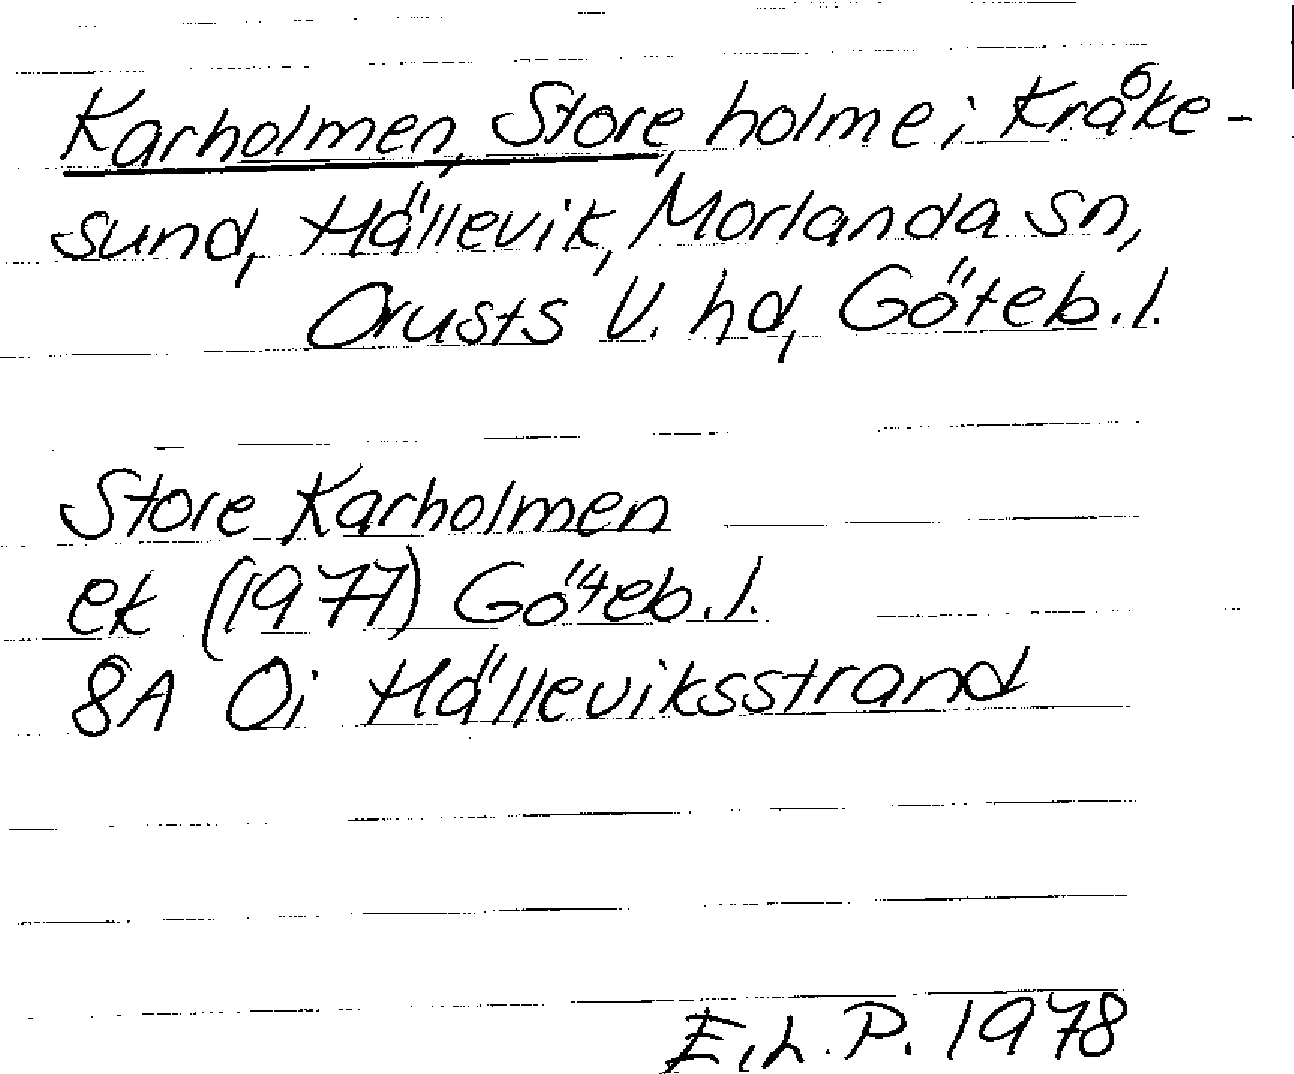 Karholmen, Store, holme i Kråke-
sund, Hällevik, Morlanda sn,
Orusts V. hd, Göteb.l.
Store Karholmen
ek (1977) Göteb.l.
8A 0i Hälleviksstrand
E.L.P. 1978